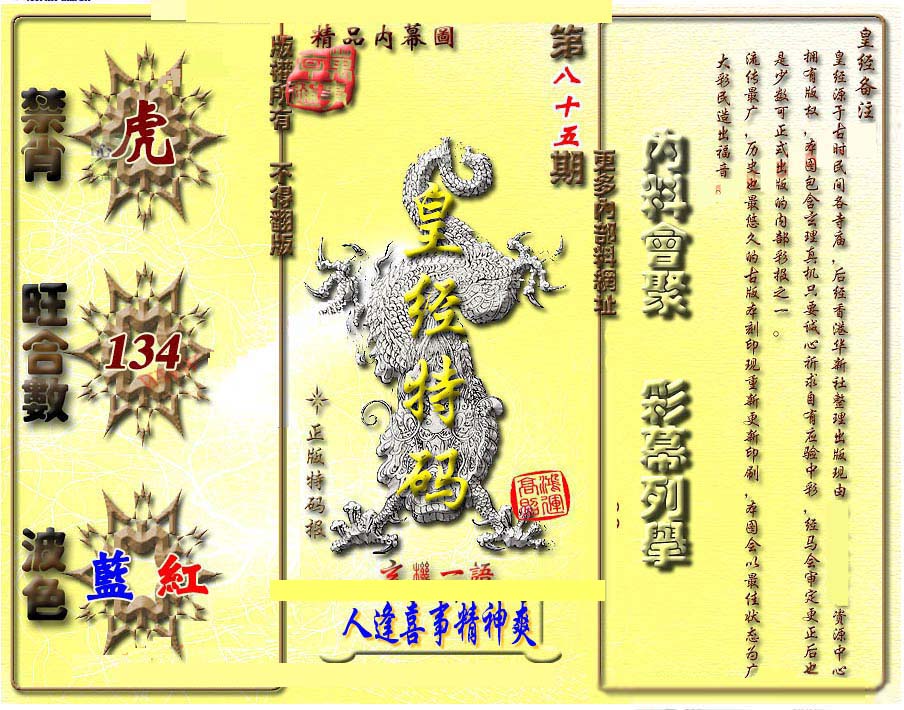 禁肖
虎
旺合數
134
波色
藍 紅
版權所有 不得翻版
精品内幕圖
第八十五期
皇经特码
正版特码报
鴻運高照
玄機一語
人逢喜事精神爽
更多内部料網址
内料會聚 彩幕列學
皇经备注
皇经源于古时民间各寺庙，后经香港华新社整理出版现由 资源中心
拥有版权，本图包含玄理真机只要诚心祈求自有应验中彩，经马会审定更正后也
是少数可正式出版的内部彩报之一。
流传最广，历史也最悠久的古版本刻印现重新更新印刷，本图会以最佳状态为广
大彩民造出福音